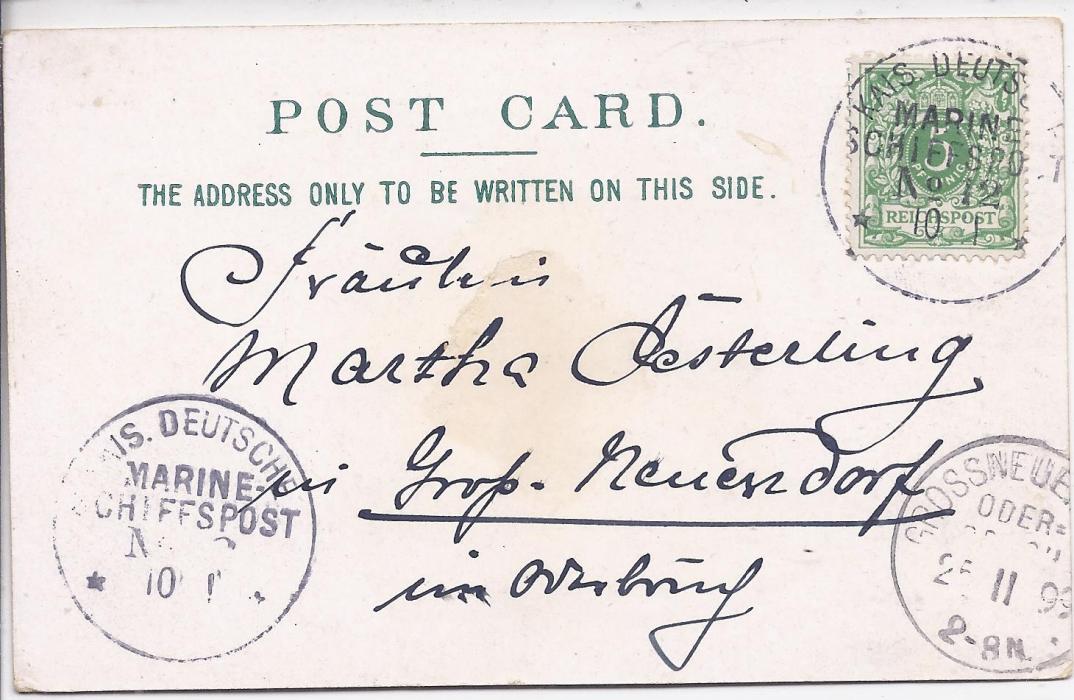 POST CARD.
THE ADDRESS ONLY TO BE WRITTEN ON THIS SIDE.
KAIS. DEUTSC
MARINE
SCHIFFSPOST
No 12
* 10 1 *
5
PFENNIG
REICHSPOST
Fräulein
Martha Oesterling
in Groß-Neuendorf
im Oderbruch
KAIS. DEUTSCHE
MARINE-
SCHIFFSPOST
N
* 10 1
GROSSNEUE
ODER=
25 11 99
2-8N.